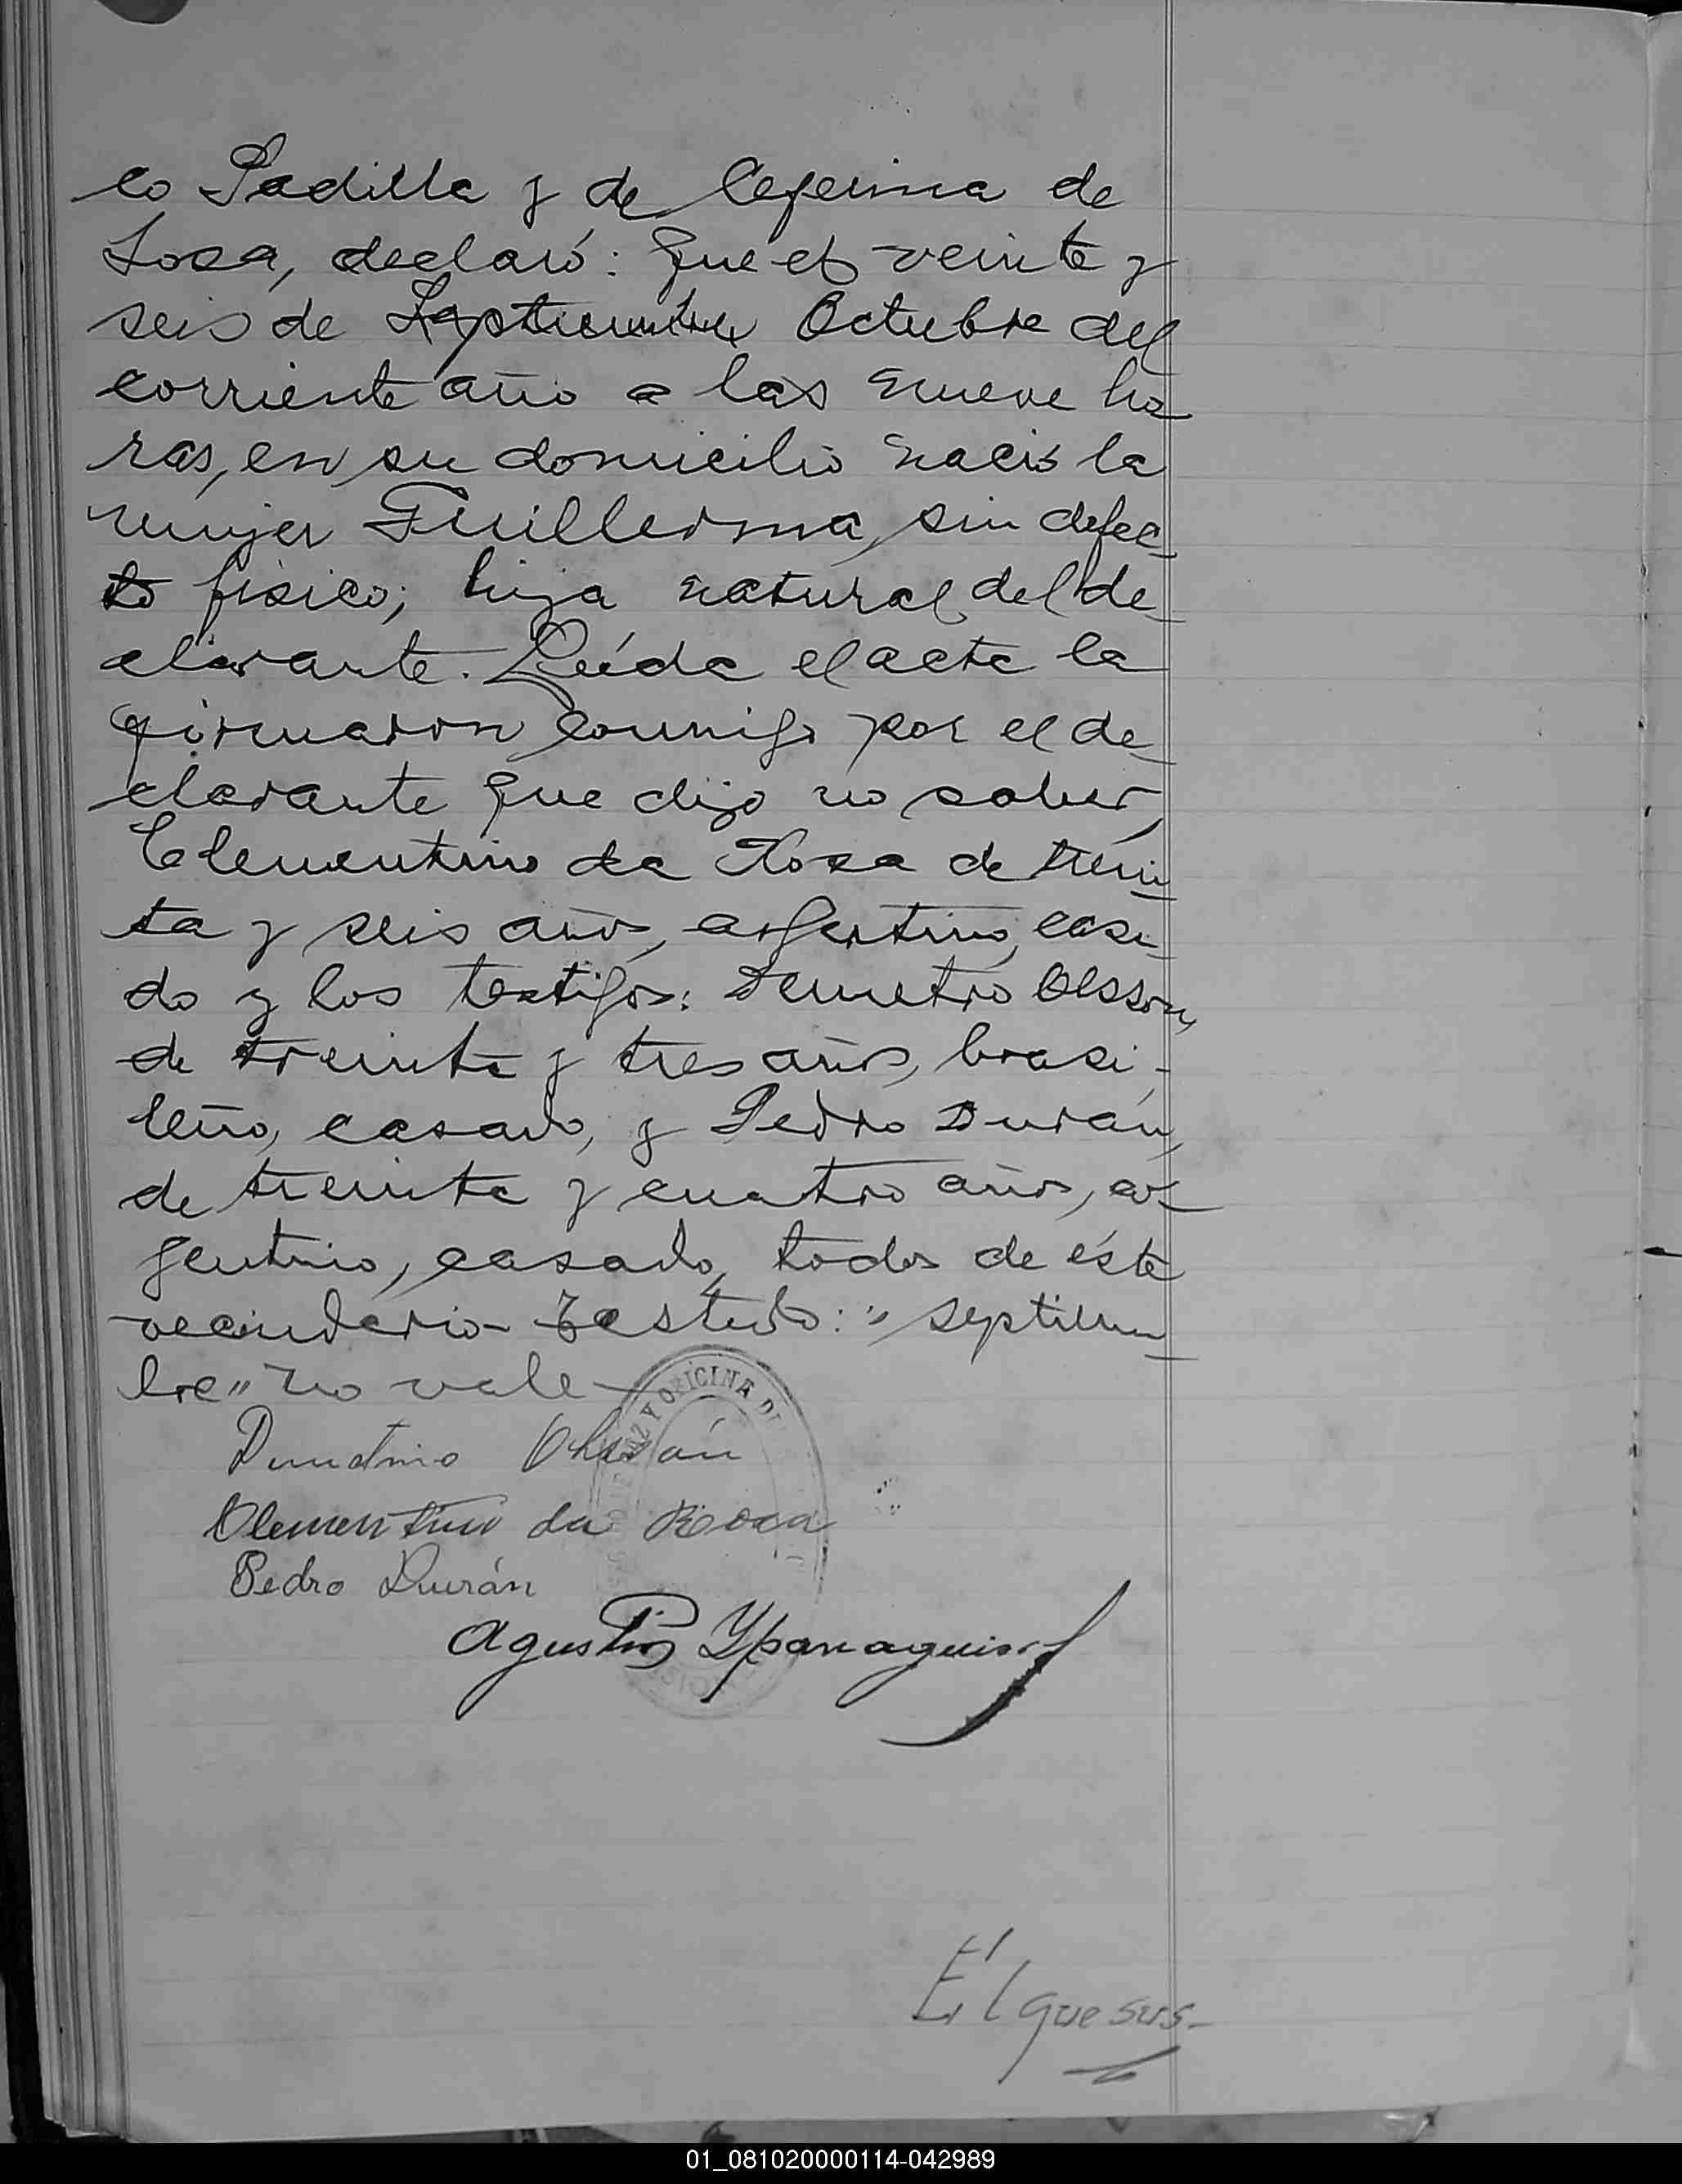 co Padilla y de Ceferina de
Sosa, declaró: Que el veinte y
seis de Septiembre Octubre del
corriente año a las nueve ho
ras, en su domicilio nació la
mujer Guillerma, sin defec-
to físico; hija natural del de-
clarante. Leída el acta la
firmaron conmigo por el de-
clarante que dijo no saber,
Clementino da Rosa de trein
ta y seis años, argentino, casa-
do y los testigos: Demetrio Olsson,
de treinta y tres años, brasi-
leño, casado, y Pedro Durán,
de treinta y cuatro años, ar-
gentino, casado, todos de éste
vecindario - Testado: "septiem
bre" no vale -
OFICINA D
Demetrio
Clementino da Rosa
Pedro Durán
Agustin
El que sus-
01_081020000114-042989